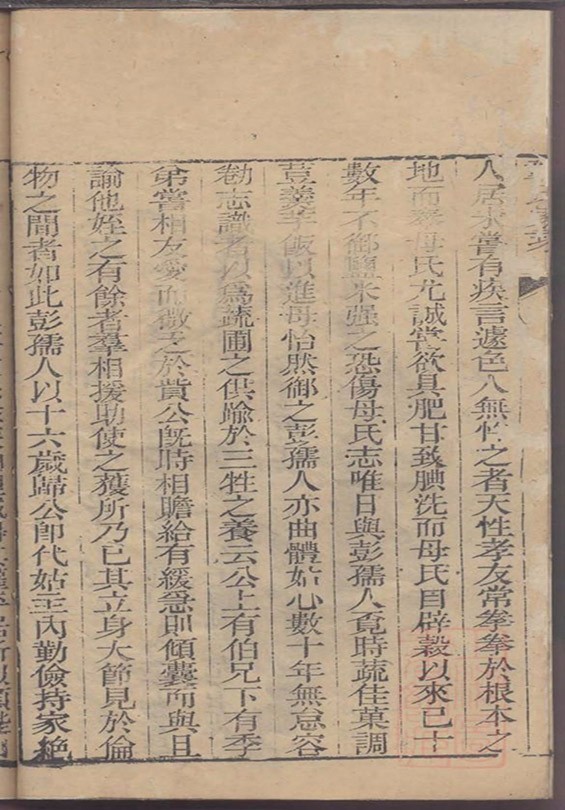 人居未嘗有疾言遽色人無忤之者天性孝友常拳拳於根本之
地而奉母氏尤誠嘗欲具肥甘致腆洗而母氏自辟穀以來已十
數年不御鹽米强之恐傷母氏志唯日與彭孺人覓時蔬佳菓調
荳羹芋飯以進母怡然御之彭孺人亦曲體姑心數十年無怠容
勌志識者以為蔬圃之供踰於三牲之養云公上有伯兄下有季
弟嘗相友愛而微乏於貲公旣時相贍給有緩急則傾囊而與且
諭他姪之有餘者羣相援助使之獲所乃已其立身大節見於倫
物之間者如此彭孺人以十六歲歸公卽代姑主內勤儉持家絶